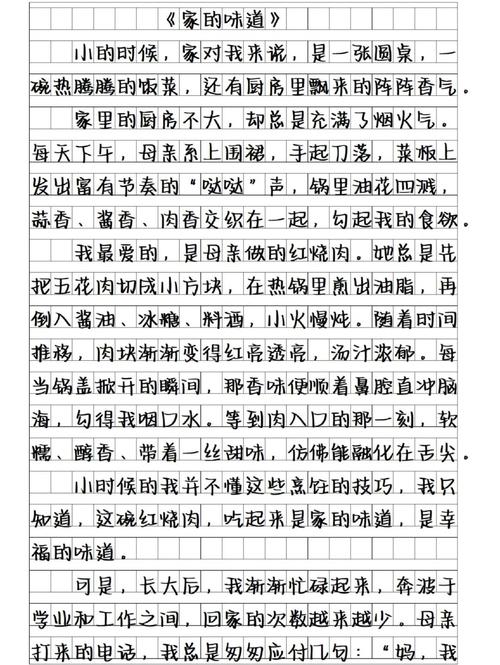 《家的味道》
小的时候，家对我来说，是一张圆桌，一
碗热腾腾的饭菜，还有厨房里飘来的阵阵香气。
家里的厨房不大，却总是充满了烟火气。
每天下午，母亲系上围裙，手起刀落，菜板上
发出富有节奏的“哒哒”声，锅里油花四溅，
蒜香、酱香、肉香交织在一起，勾起我的食欲。
我最爱的，是母亲做的红烧肉。她总是先
把五花肉切成小方块，在热锅里煎出油脂，再
倒入酱油、冰糖、料酒，小火慢炖。随着时间
推移，肉块渐渐变得红亮透亮，汤汁浓郁。每
当锅盖掀开的瞬间，那香味便顺着鼻腔直冲脑
海，勾得我咽口水。等到肉入口的那一刻，软
糯、醇香、带着一丝甜味，仿佛能融化在舌尖。
小时候的我并不懂这些烹饪的技巧，我只
知道，这碗红烧肉，吃起来是家的味道，是幸
福的味道。
可是，长大后，我渐渐忙碌起来，奔波于
学业和工作之间，回家的次数越来越少。母亲
打来的电话，我总是匆匆应付几句：“妈，我